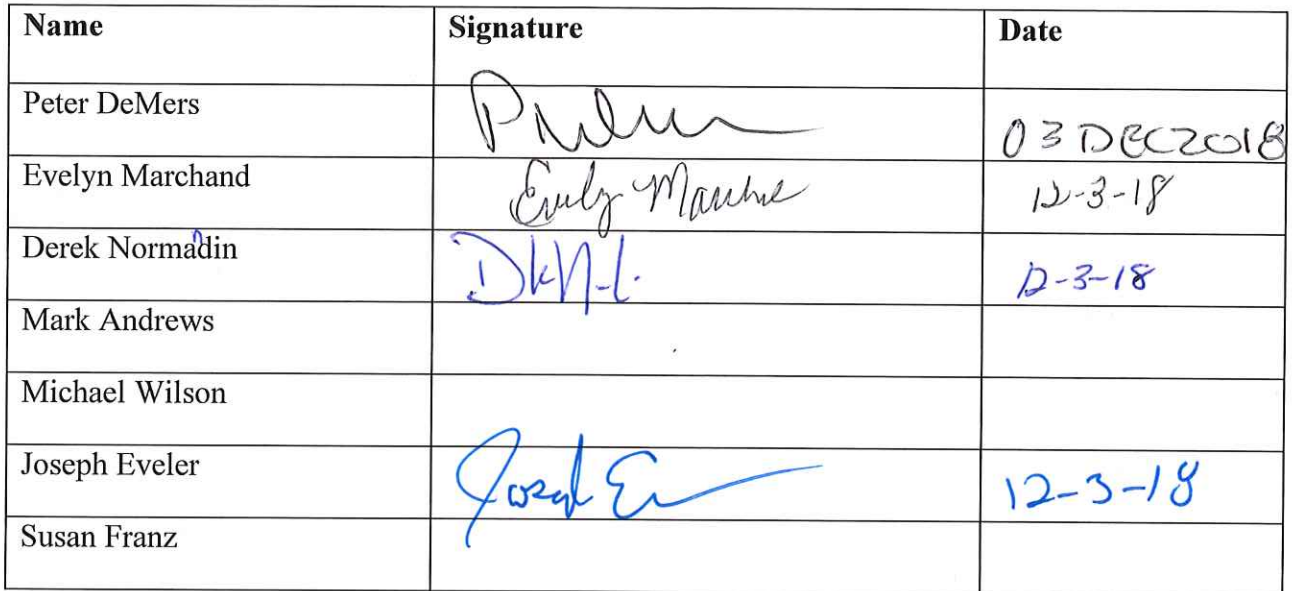 Name Signature Date
Peter DeMers 03 DEC2018
Evelyn Marchand Evelyn 12-3-18
Derek Normandin 12-3-18
Mark Andrews
Michael Wilson
Joseph Eveler Joseph 12-3-18
Susan Franz